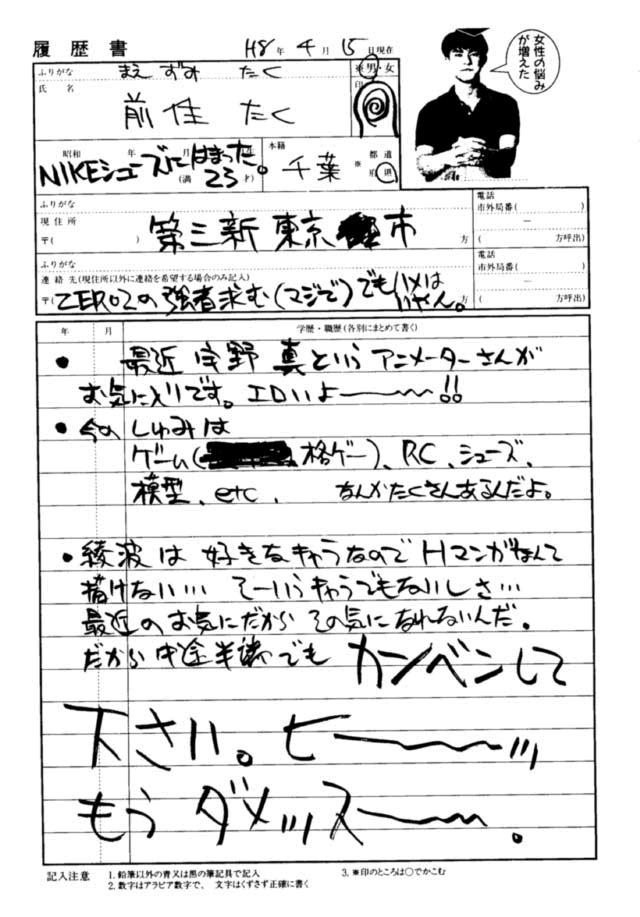 履歴書
H8年4月15日現在
女性の悩み
が増えた
ふりがな まえ ずみ たく
※男・女
氏名 前住 たく
印
昭和 年 月
NIKEシューズにはまった。
(満 23才)
本籍 千葉 ※都道府県
ふりがな
電話
市外局番( )
現住所
〒( ) 第三新東京市 方
( 方呼出)
ふりがな
電話
市外局番( )
連絡先(現住所以外に連絡を希望する場合のみ記入)
〒( ZERO2の強者求む(マジで)でもハメはいやん。
( 方呼出)
年 月 学歴・職歴(各別にまとめて書く)
• 最近 宇野 真というアニメーターさんが
お気に入りです。エロいよー〜〜!!
• 今の しゅみは
ゲーム( 格ゲー)、RC、シューズ、
模型、etc、 なんかたくさんあるんだよ。
• 綾波は 好きなキャラなので Hマンガなんて
描けない… そーいうキャラでもないしさ…
最近のお気にだから その気になれないんだ。
だから 中途半端でも カンベンして
下さい。ヒー〜〜ッ
もう ダメッスー〜。
記入注意 1.鉛筆以外の青又は黒の筆記具で記入 3.※印のところは○でかこむ
2.数字はアラビア数字で、文字はくずさず正確に書く